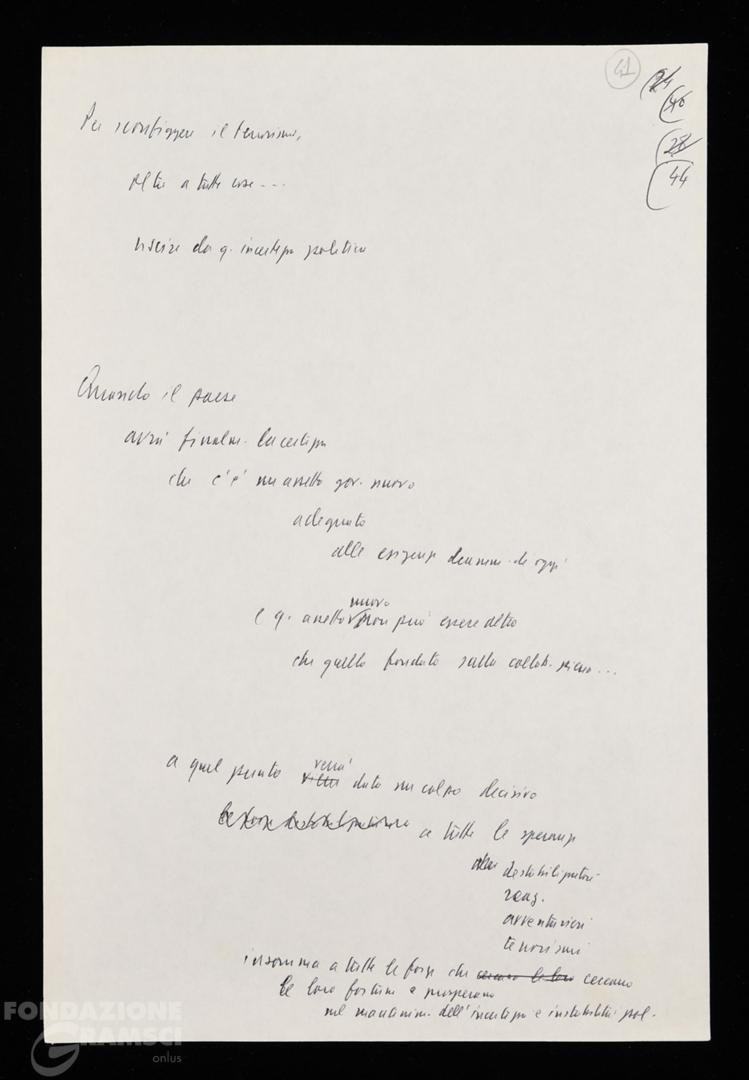 41
24
46
28
44
Per sconfiggere il terrorismo,
oltre a tutte cose ...
uscire da q. incertezza politica
Quando il paese
avrà finalm. la certezza
che c'è un assetto gov. nuovo
adeguato
alle esigenze dramm. di oggi
nuovo
e q. assetto non può essere altro
che quello fondato sulla collab. piena ...
verrà
a quel punto dato un colpo decisivo
a tutte le speranze
destabilizzatori
reaz.
avventurieri
terrorismi
insomma a tutte le forze che cercano le loro cercano
le loro fortune e prosperano
nel mantenim. dell'incertezza e instabilità pol.
FONDAZIONE
GRAMSCI
onlus